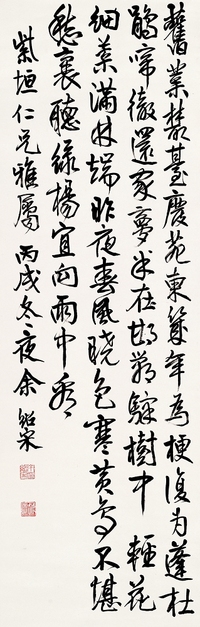 舊業叢臺廢苑東幾年為梗復为蓬杜
鵑啼徹還家夢半在邯鄲驛樹中 輕花
細葉滿林端昨夜春風曉色寒黃鳥不堪
愁裏聽綠楊宜向雨中看
紫垣仁兄雅屬 丙戌冬夜余紹宋